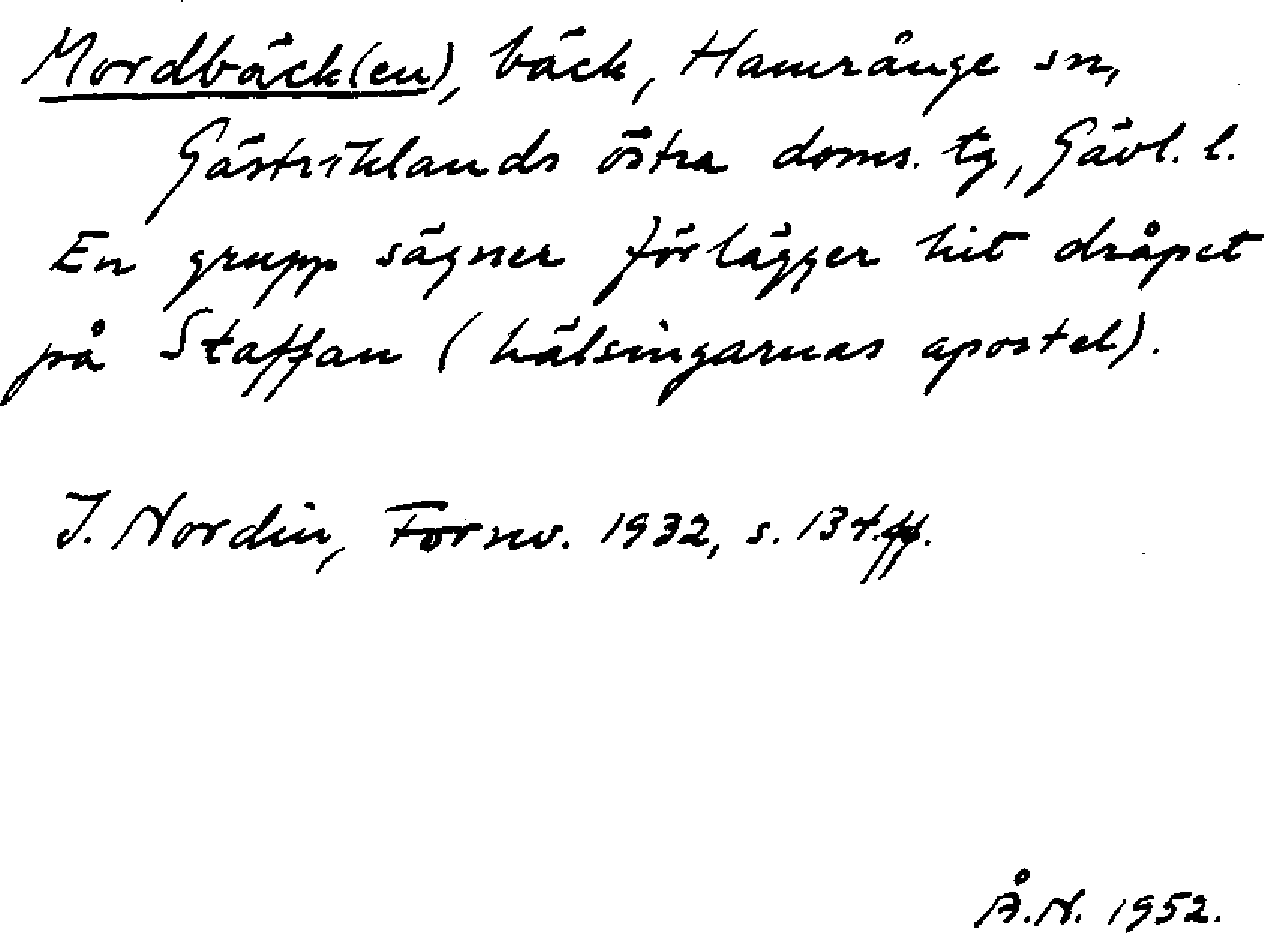 Mordbäck(en), bäck, Hamrånge sn,
Gästriklands östra doms. tg, Gävl. l.
En grupp sägner förlägger hit dråpet
på Staffan (hälsingarnas apostel).
J. Nordin, Fornv. 1932, s. 134 ff.
Å.N. 1952.